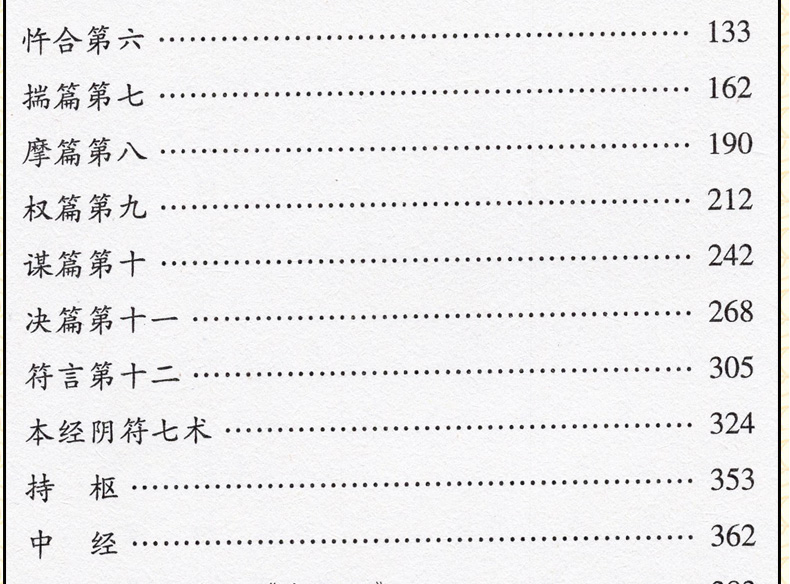 忤合第六 …………………………………… 133
揣篇第七 …………………………………… 162
摩篇第八 …………………………………… 190
权篇第九 …………………………………… 212
谋篇第十 …………………………………… 242
决篇第十一 ………………………………… 268
符言第十二 ………………………………… 305
本经阴符七术 ……………………………… 324
持　枢 ……………………………………… 353
中　经 ……………………………………… 362